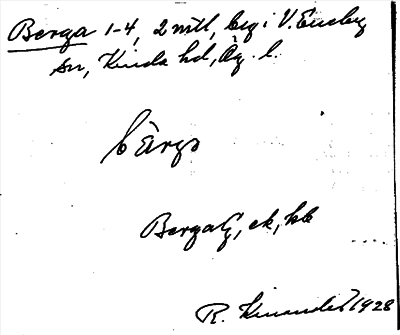 Berga 1-4, 2 mtl, beg i V. Eneby
sn, Kinda hd, Ög. l.
bärgɑ
Berga G, ek, kb
R. Kinander 1928